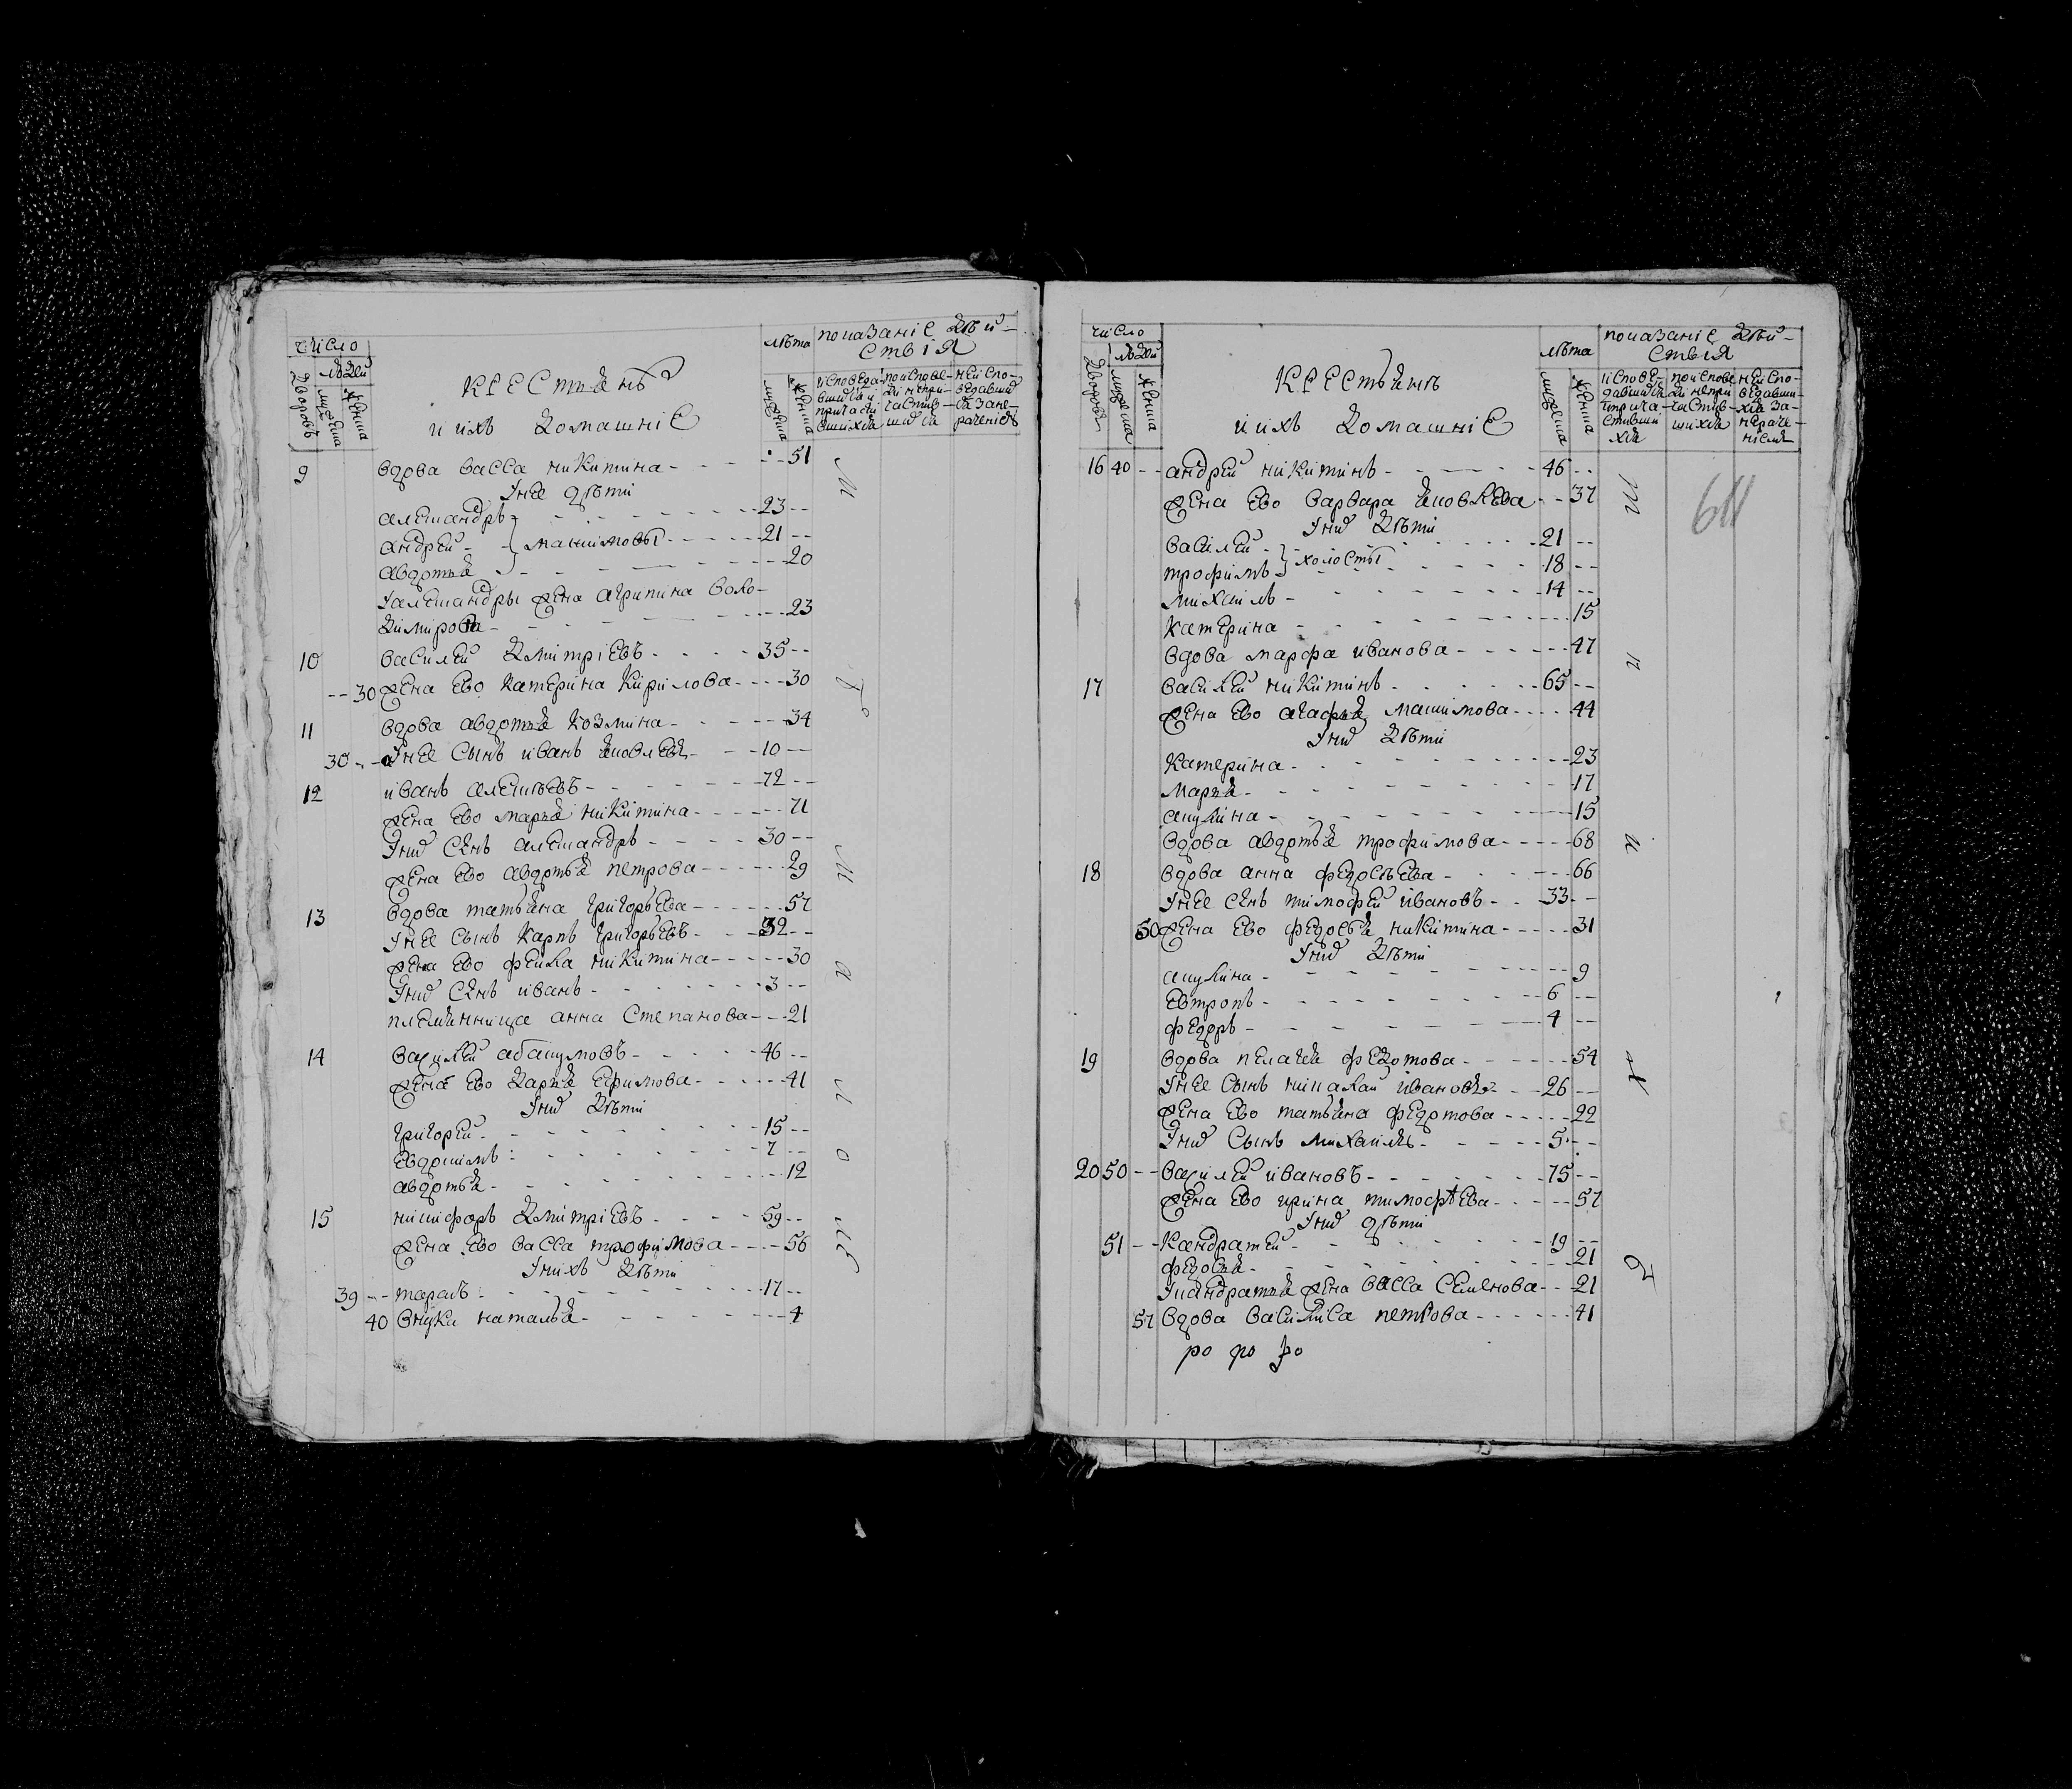 число
людей
дворовъ
мужеска
женска
крестьянъ
и ихъ домашніе
лѣта
мужеска
женска
показаніе дѣй-
ствія
9 вдова васса никитина - - - 51
у нее дѣти
алеѯандръ - - - 23 - -
андрей - максимовы - - - 21 - -
авдотья - - - 20
у алеѯандры жена агрипина воло-
димирова - - - 23
10 василей дмитріевъ - - - 35 - -
- - 30 жена ево катерина кирилова - - - 30
11 вдова авдотья козмина - - - 34
30 - - у нее сынъ иванъ яковлевъ - - - 10 - -
12 иванъ алеѯѣевъ - - - 72 - -
жена ево марья никитина - - - 71
у них сынъ алеѯандръ - - - 30 - -
жена ево авдотья петрова - - - 29
13 вдова татьяна григорьева - - - 57
у нее сынъ карпъ григорьевъ - - - 32 - -
жена ево фекла никитина - - - 30
у них сынъ иванъ - - - 3 - -
племянница анна степанова - - - 21
14 василей абакумовъ - - - 46 - -
жена ево дарья ефимова - - - 41
у них дѣти
григорей - - - 15 - -
евдокимъ - - - 7 - -
авдотья - - - 12
15 никифоръ дмитріевъ - - - 59 - -
жена ево васса трофимова - - - 56
у нихъ дѣти
39 - - тарасъ - - - 17 - -
40 внука наталья - - - 4
число
людей
дворовъ
мужеска
женска
крестьянъ
и ихъ домашніе
лѣта
мужеска
женска
показаніе дѣй-
ствія
611
16 40 - - андрей никитинъ - - - 46 - -
жена ево варвара яковлева - - 37
у них дѣти
василей - - - 21 - -
трофимъ - холосты - - - 18 - -
михаилъ - - - 14 - -
катерина - - - 15
вдова марфа иванова - - - 47
17 василей никитинъ - - - 65 - -
жена ево агафья максимова - - - 44
у них дѣти
катерина - - - 23
марья - - - 17
акулина - - - 15
вдова авдотья трофимова - - - 68
18 вдова анна федосѣева - - - 66
у нее сынъ тимофей ивановъ - - 33 - -
50 жена ево федосья никитина - - - 31
у них дѣти
акулина - - - 9
евтропъ - - - 6 - -
федоръ - - - 4 - -
19 вдова пелагея федотова - - - 54
у нее сынъ николай ивановъ - - 26 - -
жена ево татьяна федотова - - - 22
у них сынъ михаилъ - - - 5 - -
20 50 - - василей ивановъ - - - 75 - -
жена ево ирина тимофѣева - - - 57
у них дѣти
51 - - кандратей - - - 19 - -
федосья - - - 21
у кандратья жена васса семенова - - 21
57 вдова василиса петрова - - - 41
ро ро ро